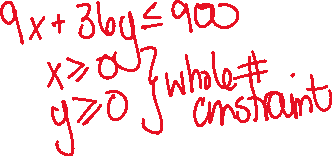 9x + 36y ≤ 900
x ≥ 0
y ≥ 0 } whole #
constraint